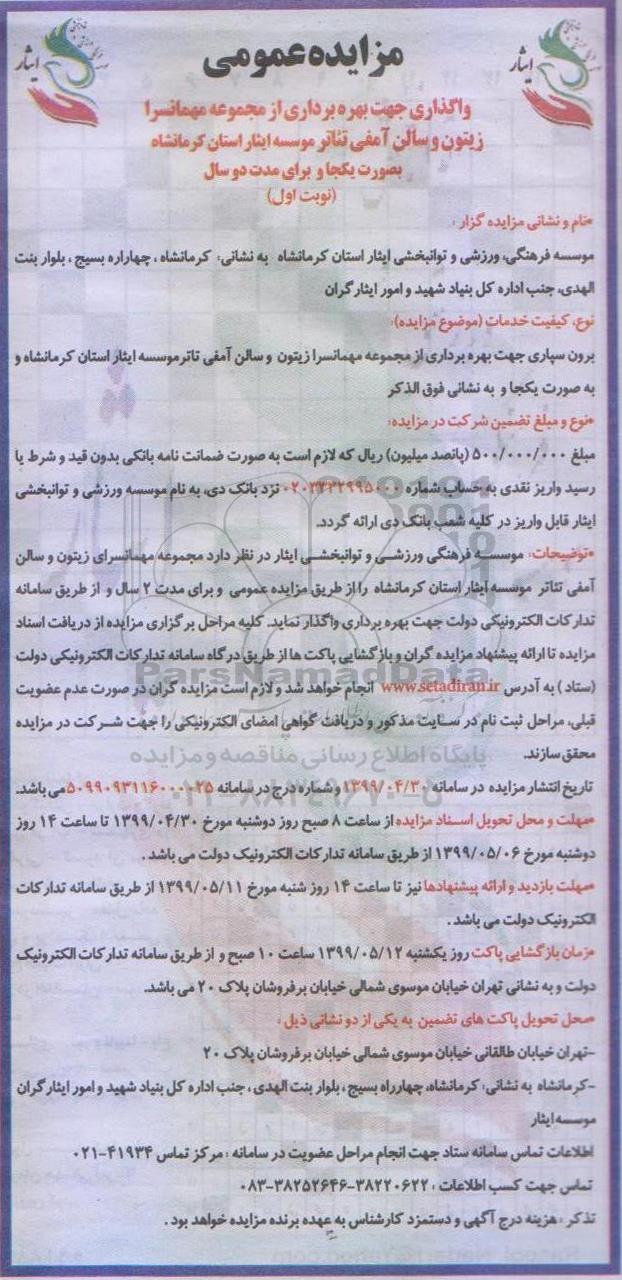 مزایده عمومی
واگذاری جهت بهره برداری از مجموعه مهمانسرا
زیتون و سالن آمفی تئاتر موسسه ایثار استان کرمانشاه
بصورت یکجا و برای مدت دو سال
(نوبت اول)
ایثار
ایثار
•نام و نشانی مزایده گزار :
موسسه فرهنگی، ورزشی و توانبخشی ایثار استان کرمانشاه به نشانی: کرمانشاه ، چهاراره بسیج ، بلوار بنت
الهدی، جنب اداره کل بنیاد شهید و امور ایثارگران
نوع، کیفیت خدمات (موضوع مزایده):
برون سپاری جهت بهره برداری از مجموعه مهمانسرا زیتون و سالن آمفی تاتر موسسه ایثار استان کرمانشاه و
به صورت یکجا و به نشانی فوق الذکر
•نوع و مبلغ تضمین شرکت در مزایده:
مبلغ ۵۰۰/۰۰۰/۰۰۰ (پانصد میلیون) ریال که لازم است به صورت ضمانت نامه بانکی بدون قید و شرط یا
رسید واریز نقدی به حساب شماره نزد بانک دی، به نام موسسه ورزشی و توانبخشی
ایثار قابل واریز در کلیه شعب بانک دی ارائه گردد.
•توضیحات: موسسه فرهنگی ورزشی و توانبخشی ایثار در نظر دارد مجموعه مهمانسرای زیتون و سالن
آمفی تئاتر موسسه ایثار استان کرمانشاه را از طریق مزایده عمومی و برای مدت ۲ سال و از طریق سامانه
تدارکات الکترونیکی دولت جهت بهره برداری واگذار نماید. کلیه مراحل برگزاری مزایده از دریافت اسناد
مزایده تا ارائه پیشنهاد مزایده گران و بازگشایی پاکت ها از طریق درگاه سامانه تدارکات الکترونیکی دولت
(ستاد) به آدرس www.setadiran.ir انجام خواهد شد و لازم است مزایده گران در صورت عدم عضویت
قبلی، مراحل ثبت نام در سایت مذکور و دریافت گواهی امضای الکترونیکی را جهت شرکت در مزایده
محقق سازند.
تاریخ انتشار مزایده در سامانه ۱۳۹۹/۰۴/۳۰ و شماره درج در سامانه ۵۰۹۹۰۹۳۱۱۶۰۰۰۰۲۵ می باشد.
•مهلت و محل تحویل اسناد مزایده از ساعت ۸ صبح روز دوشنبه مورخ ۱۳۹۹/۰۴/۳۰ تا ساعت ۱۴ روز
دوشنبه مورخ ۱۳۹۹/۰۵/۰۶ از طریق سامانه تدارکات الکترونیک دولت می باشد .
•مهلت بازدید و ارائه پیشنهادها نیز تا ساعت ۱۴ روز شنبه مورخ ۱۳۹۹/۰۵/۱۱ از طریق سامانه تدارکات
الکترونیک دولت می باشد .
•زمان بازگشایی پاکت روز یکشنبه ۱۳۹۹/۰۵/۱۲ ساعت ۱۰ صبح و از طریق سامانه تدارکات الکترونیک
دولت و به نشانی تهران خیابان موسوی شمالی خیابان برفروشان پلاک ۲۰ می باشد.
•محل تحویل پاکت های تضمین به یکی از دو نشانی ذیل :
-تهران خیابان طالقانی خیابان موسوی شمالی خیابان برفروشان پلاک ۲۰
-کرمانشاه به نشانی: کرمانشاه، چهارراه بسیج ، بلوار بنت الهدی ، جنب اداره کل بنیاد شهید و امور ایثارگران
موسسه ایثار
اطلاعات تماس سامانه ستاد جهت انجام مراحل عضویت در سامانه : مرکز تماس ۴۱۹۳۴-۰۲۱
تماس جهت کسب اطلاعات : ۳۸۲۲۰۶۲۲-۳۸۲۵۲۶۴۶-۰۸۳
تذکر : هزینه درج آگهی و دستمزد کارشناس به عهده برنده مزایده خواهد بود .
ParsNamadData
پایگاه اطلاع رسانی مناقصه و مزایده
۰۲۱-۸۸۳۴۹۶۷۰-۵